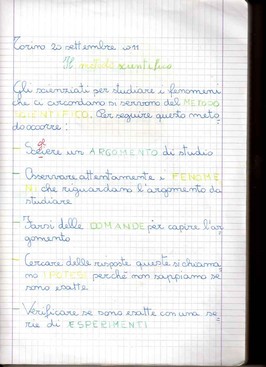 Torino 20 settembre 2011
Il metodo scientifico
Gli scienziati per studiare i fenomeni
che ci circondano si servono del METODO
SCIENTIFICO. Per seguire questo meto
do occorre:
- Scegliere un ARGOMENTO di studio
- Osservare attentamente i FENOME
NI che riguardano l'argomento da
studiare
- Farsi delle DOMANDE per capire l'ar
gomento
- Cercare delle risposte queste si chiama
no IPOTESI perché non sappiamo se
sono esatte
- Verificare se sono esatte con una se
rie di ESPERIMENTI